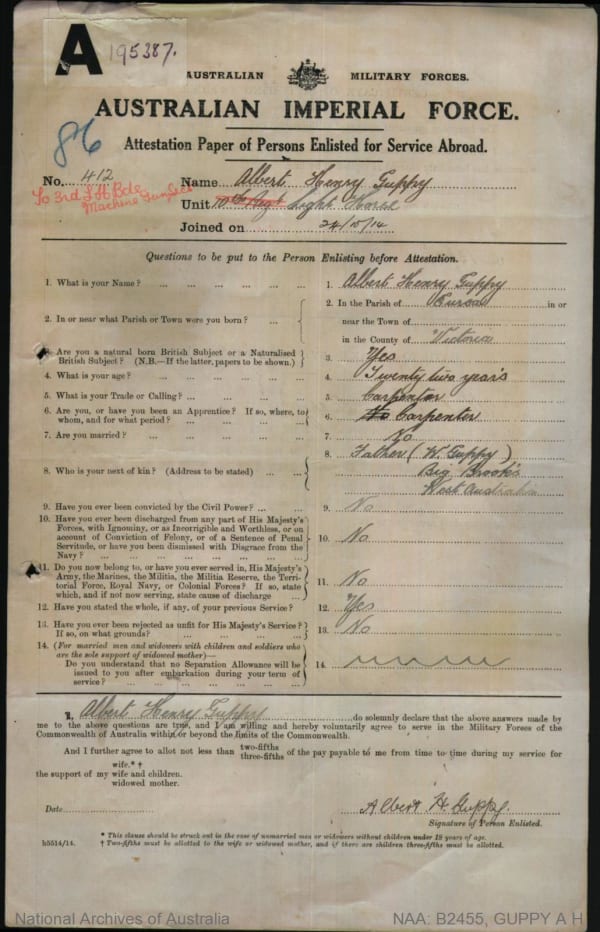 A 195387.
AUSTRALIAN MILITARY FORCES.
AUSTRALIAN IMPERIAL FORCE.
86
Attestation Paper of Persons Enlisted for Service Abroad.
No. 412 Name Albert Henry Guppy
To 3rd L H Bde
Machine Gunners
Unit 10th Regt Light Horse
Joined on 24/10/14
Questions to be put to the Person Enlisting before Attestation.
1. What is your Name? ... ... ... ... ... 1. Albert Henry Guppy
2. In or near what Parish or Town were you born? ... ... 2. In the Parish of in or
near the Town of
in the County of Victoria
3. Are you a natural born British Subject or a Naturalised British Subject? (N.B.—If the latter, papers to be shown.) 3. Yes
4. What is your age? ... ... ... ... ... 4. Twenty two years
5. What is your Trade or Calling? ... ... ... ... 5. Carpenter
6. Are you, or have you been an Apprentice? If so, where, to whom, and for what period? ... ... ... ... 6. No Carpenter
7. Are you married? ... ... ... ... ... 7. No
8. Who is your next of kin? (Address to be stated) ... ... 8. Father (W. Guppy)
Big Brook
West Australia
9. Have you ever been convicted by the Civil Power? ... ... 9. No
10. Have you ever been discharged from any part of His Majesty's
Forces, with Ignominy, or as Incorrigible and Worthless, or on
account of Conviction of Felony, or of a Sentence of Penal
Servitude, or have you been dismissed with Disgrace from the
Navy? ... ... ... ... ... 10. No
11. Do you now belong to, or have you ever served in, His Majesty's
Army, the Marines, the Militia, the Militia Reserve, the Terri-
torial Force, Royal Navy, or Colonial Forces? If so, state
which, and if not now serving, state cause of discharge ... 11. No
12. Have you stated the whole, if any, of your previous Service? 12. Yes
13. Have you ever been rejected as unfit for His Majesty's Service?
If so, on what grounds? ... ... ... ... 13. No
14. (For married men and widowers with children and soldiers who
are the sole support of widowed mother)—
Do you understand that no Separation Allowance will be
issued to you after embarkation during your term of
service? ... ... ... ... ... 14.
I, Albert Henry Guppy do solemnly declare that the above answers made by
me to the above questions are true, and I am willing and hereby voluntarily agree to serve in the Military Forces of the
Commonwealth of Australia within or beyond the limits of the Commonwealth.
And I further agree to allot not less than two-fifths three-fifths of the pay payable to me from time to time during my service for
wife.*†
the support of my wife and children.
widowed mother.
Date
Albert H. Guppy.
Signature of Person Enlisted.
* This clause should be struck out in the case of unmarried men or widowers without children under 18 years of age.
h5514/14. † Two-fifths must be allotted to the wife or widowed mother, and if there are children three-fifths must be allotted.
National Archives of Australia NAA: B2455, GUPPY A H